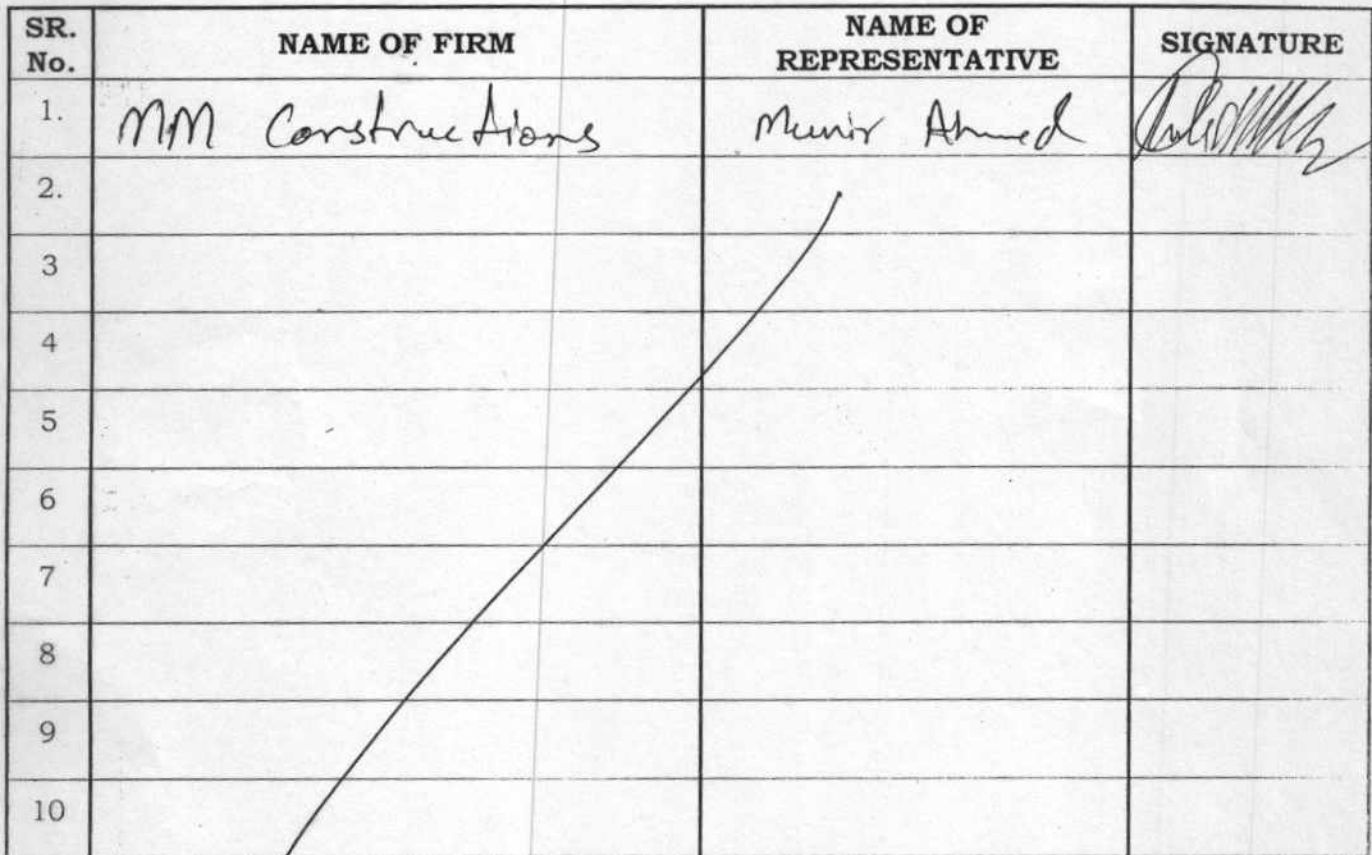 SR. No. NAME OF FIRM NAME OF REPRESENTATIVE SIGNATURE
1. MM Constructions Munir Ahmed
2.
3
4
5
6
7
8
9
10